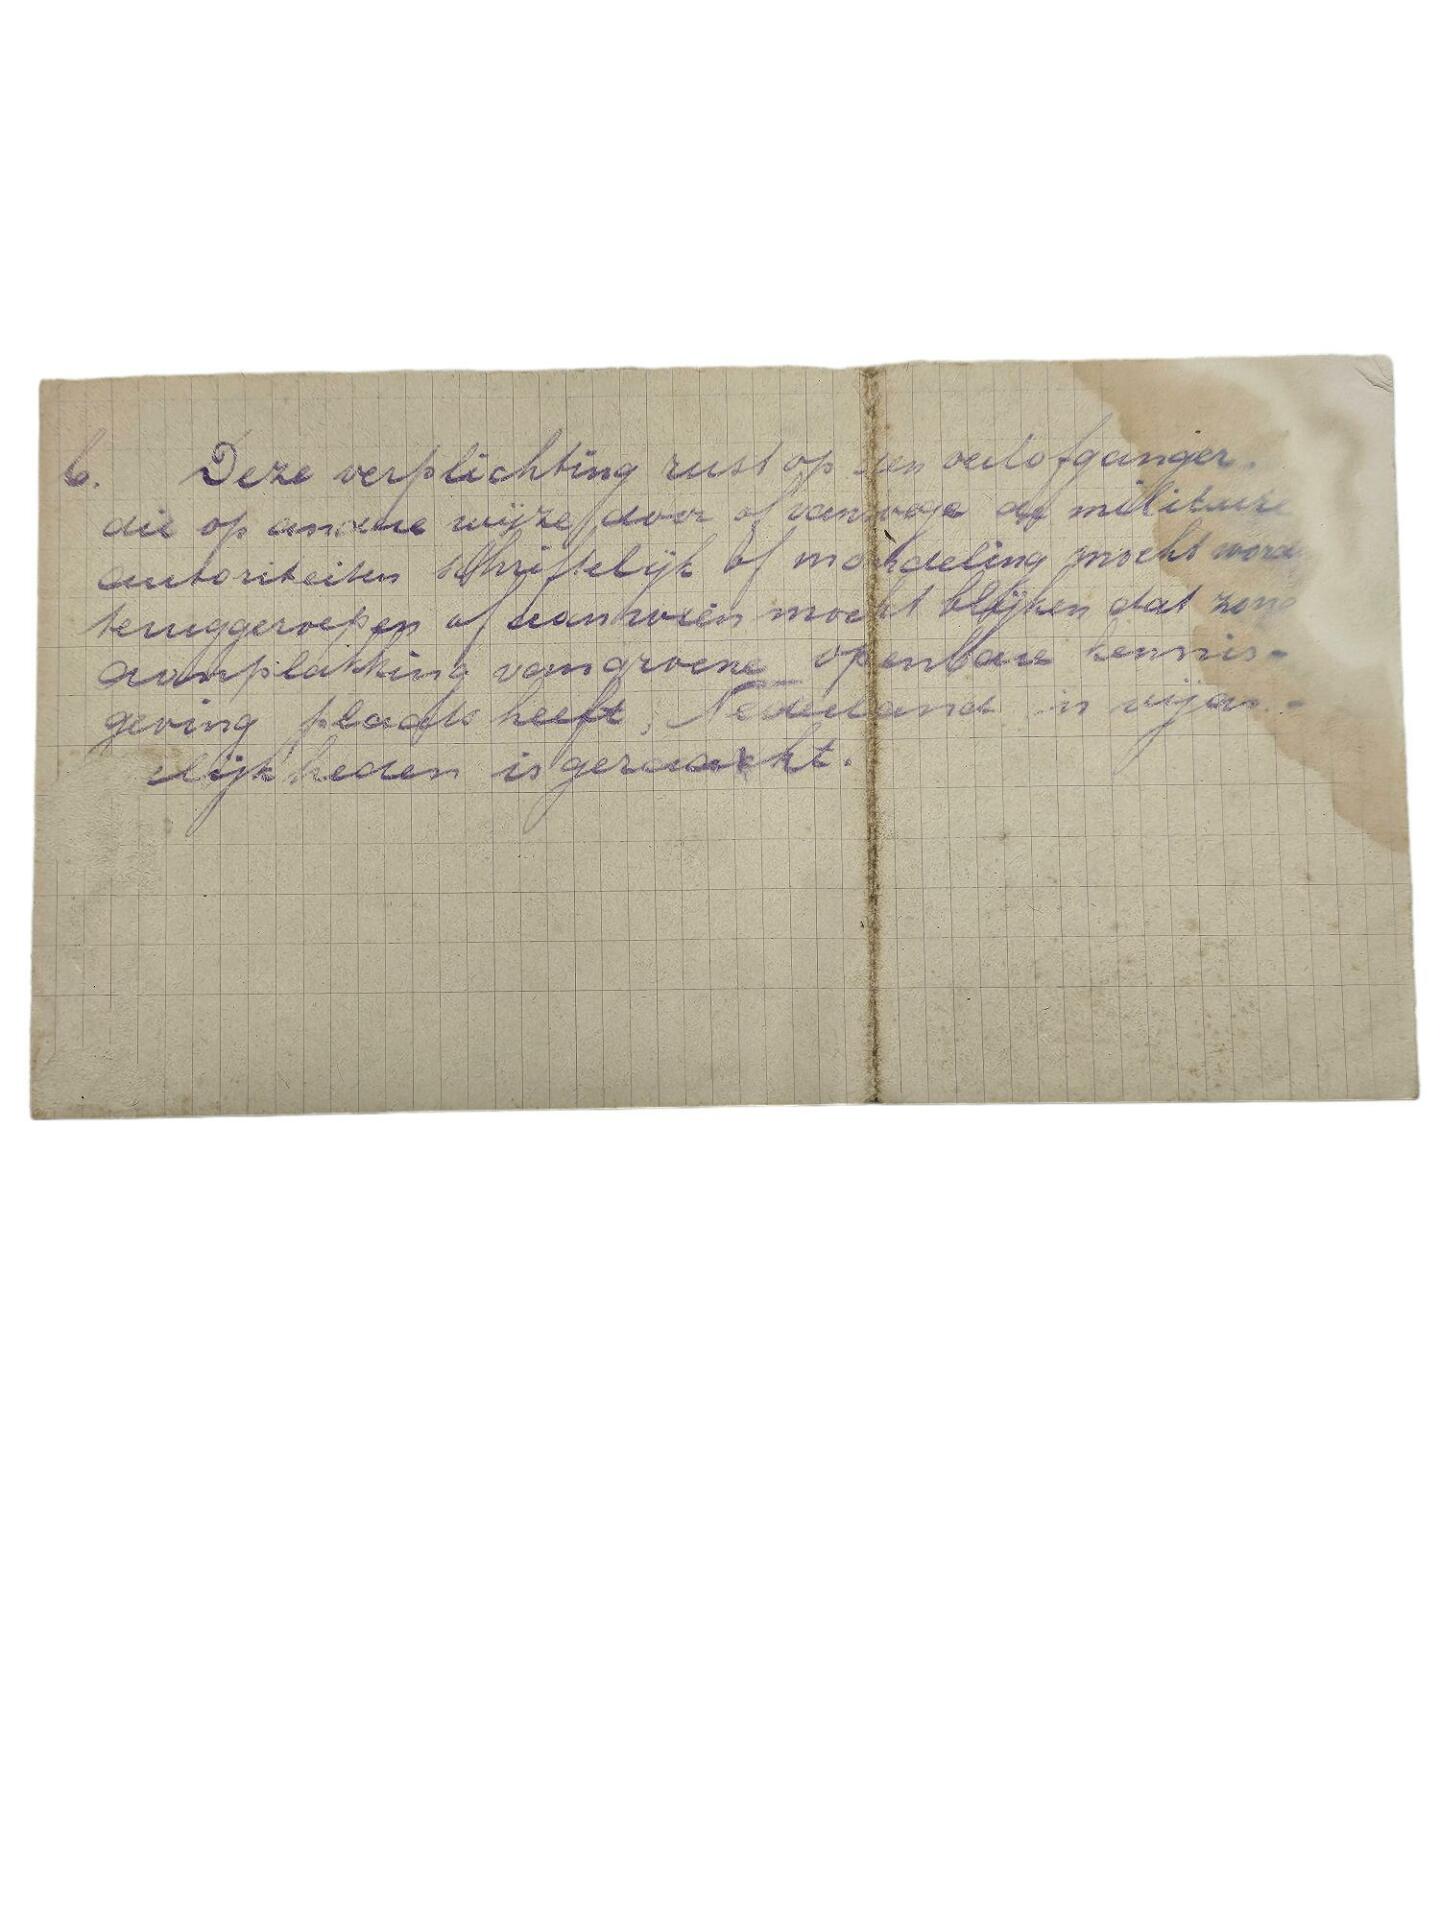 6. Deze verplichting rust op den verlofganger.
die op andere wijze door of vanwege de militaire
autoriteiten schriftelijk of mondeling mocht worde
teruggeroepen of aan wien mocht blijken dat zond
aanplakking van groene openbare kennis-
geving plaats heeft, Nederland in vijan-
lijkheden is geraakt.